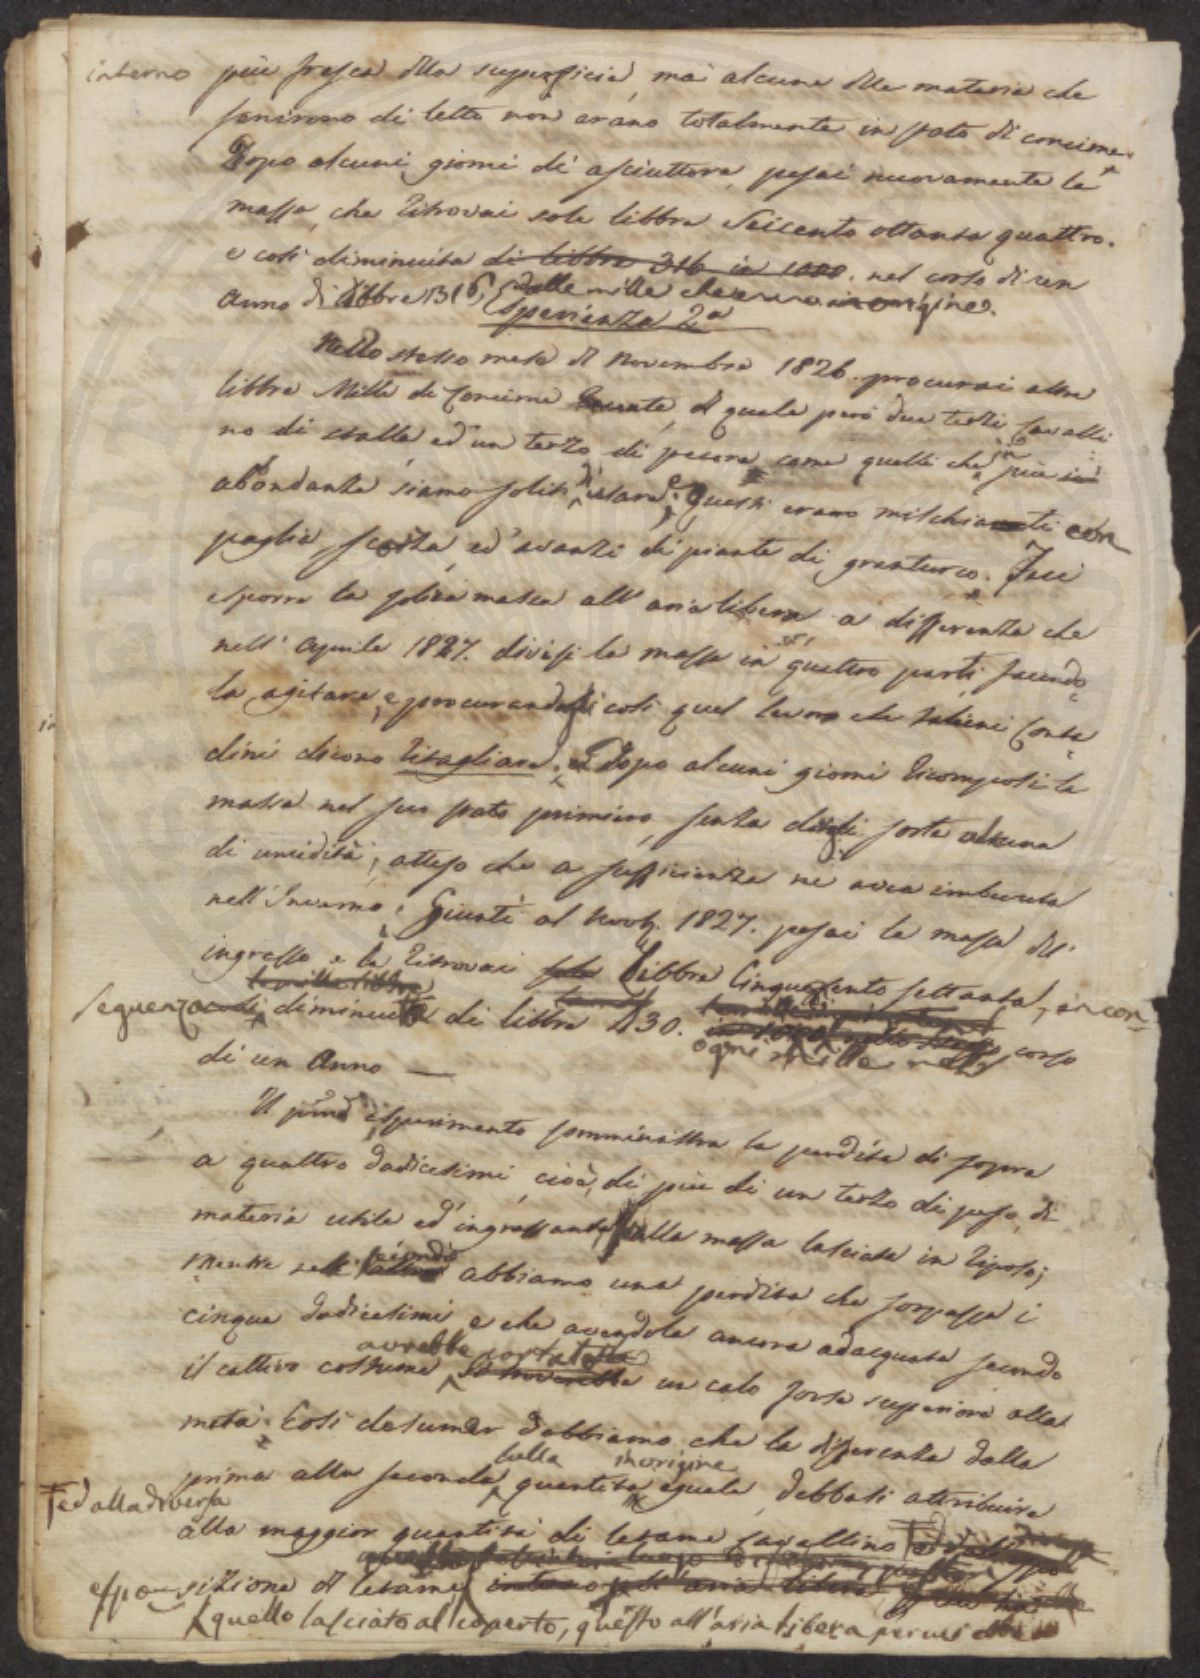 interno più fresca della superficie, mà alcune delle materie che
servirono di letto non erano totalmente in stato di concime.
Dopo alcuni giorni di asciuttore, pesai nuovamente la
massa, che ritrovai sole libbre Seicento ottanta quattro.
e così diminuita di libbre 316 in 1000. nel corso di un
Anno di Libbre 316, dalle mille che erano in origine.
Esperienza 2ª
Nello stesso mese di Novembre 1826. procurai altre
libbre Mille di Concime, di quale però due terzi Cavalli
no di stalla, ed un terzo di pecora come quelli che in più
abondanza siamo soliti d'usare. Questi erano mischiati con
paglia, ed avanzi di piante di granturco. Feci
esporre la solita massa all'aria libera, a differenza che
nell'Aprile 1827. divisi la massa in quattro parti facendo
la agitare, e procurandogli così quel lavoro che i Conta
dini dicono ritagliare. Dopo alcuni giorni ricomposi la
massa nel suo stato primiero, senza darli sorte alcuna
di umidità, atteso che a sufficienza ne avea imbevuta
nell'Inverno. Giunti al Novb. 1827. pesai la massa dell'
ingrasso e la ritrovai Libbre Cinquecento settanta, in con-
seguenza diminuita di libbre 430. ogni mille nel corso
di un Anno —
Il primo esperimento somministra la perdita di sopra
a quattro dodicesimi, cioè, di più di un terzo di peso, di
materia utile ed ingrassante, dalla massa lasciata in riposo;
mentre nel secondo abbiamo una perdita che sorpassa i
cinque dodicesimi, e che avendola ancora adacquata secondo
il cattivo costume avrebbe portato un calo forse superiore alla
metà. Così desumer dobbiamo che la differenza dalla
prima alla seconda, sulla quantità in origine eguale, debbasi attribuire
alla maggior quantità di letame cavallino ed alla diversa
espo-sizione di letame,
quello lasciato al coperto, questo all'aria libera per cui